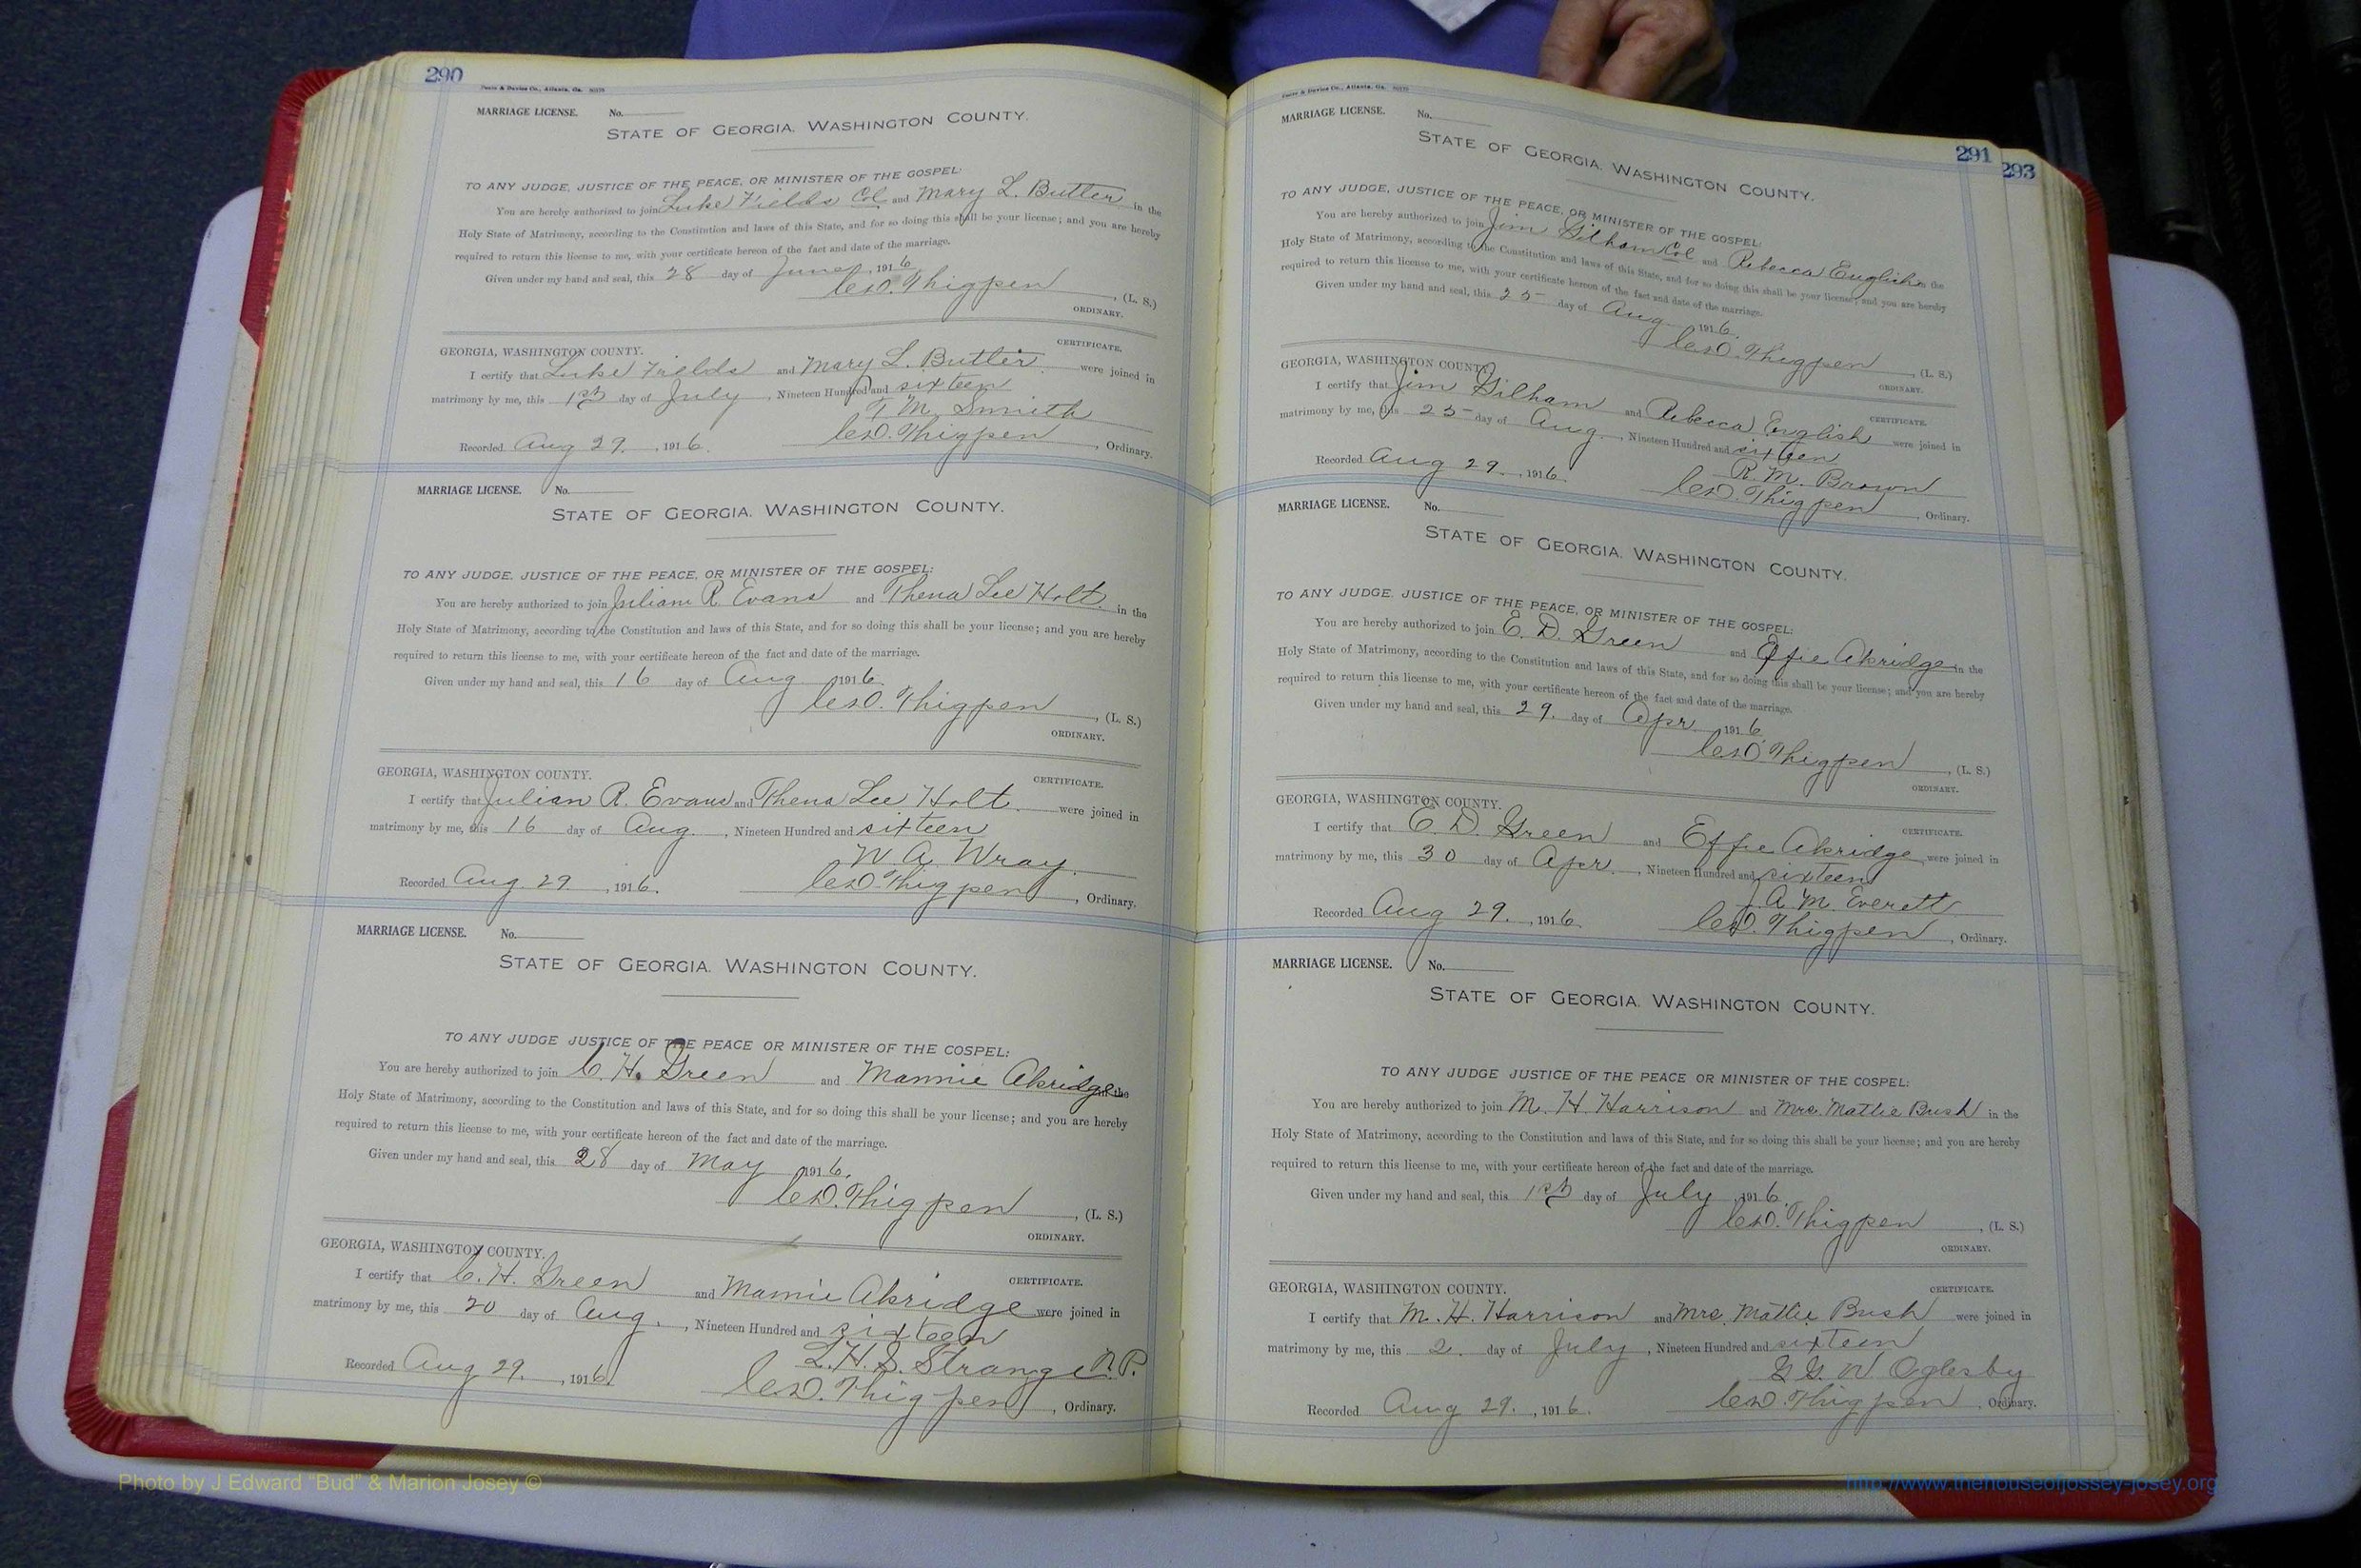 290
MARRIAGE LICENSE. No.
STATE OF GEORGIA. WASHINGTON COUNTY.
TO ANY JUDGE, JUSTICE OF THE PEACE, OR MINISTER OF THE GOSPEL:
You are hereby authorized to join Luke Fields Col and Mary L. Butler in the
Holy State of Matrimony, according to the Constitution and laws of this State, and for so doing this shall be your license; and you are hereby
required to return this license to me, with your certificate hereon of the fact and date of the marriage.
Given under my hand and seal, this 28 day of June, 1916
Thigpen, (L. S.)
ORDINARY.
CERTIFICATE.
GEORGIA, WASHINGTON COUNTY.
I certify that Luke Fields and Mary L. Butler were joined in
matrimony by me, this 1st day of July, Nineteen Hundred and sixteen
M. Smith
Recorded Aug 29., 1916. Thigpen, Ordinary.
MARRIAGE LICENSE. No.
STATE OF GEORGIA. WASHINGTON COUNTY.
TO ANY JUDGE, JUSTICE OF THE PEACE, OR MINISTER OF THE GOSPEL:
You are hereby authorized to join Julian R. Evans and Thena Lee Holt. in the
Holy State of Matrimony, according to the Constitution and laws of this State, and for so doing this shall be your license; and you are hereby
required to return this license to me, with your certificate hereon of the fact and date of the marriage.
Given under my hand and seal, this 16 day of Aug 1916.
Thigpen, (L. S.)
ORDINARY.
GEORGIA, WASHINGTON COUNTY.
CERTIFICATE.
I certify that Julian R. Evans and Thena Lee Holt. were joined in
matrimony by me, this 16 day of Aug., Nineteen Hundred and sixteen
W. A. Wray.
Recorded Aug. 29, 1916. Thigpen, Ordinary.
MARRIAGE LICENSE. No.
STATE OF GEORGIA. WASHINGTON COUNTY.
TO ANY JUDGE JUSTICE OF THE PEACE OR MINISTER OF THE COSPEL:
You are hereby authorized to join C. H. Green and Mannie Akridge in the
Holy State of Matrimony, according to the Constitution and laws of this State, and for so doing this shall be your license; and you are hereby
required to return this license to me, with your certificate hereon of the fact and date of the marriage.
Given under my hand and seal, this 28 day of May 1916.
Thigpen, (L. S.)
ORDINARY.
GEORGIA, WASHINGTON COUNTY.
CERTIFICATE.
I certify that C. H. Green and Mamie Akridge were joined in
matrimony by me, this 20 day of Aug., Nineteen Hundred and sixteen
L. H. S. Strange N. P.
Recorded Aug 29., 1916. Thigpen, Ordinary.
291
293
MARRIAGE LICENSE. No.
STATE OF GEORGIA. WASHINGTON COUNTY.
TO ANY JUDGE, JUSTICE OF THE PEACE, OR MINISTER OF THE GOSPEL:
You are hereby authorized to join Jim Gilham Col and Rebecca English in the
Holy State of Matrimony, according to the Constitution and laws of this State, and for so doing this shall be your license; and you are hereby
required to return this license to me, with your certificate hereon of the fact and date of the marriage.
Given under my hand and seal, this 25 day of Aug 1916.
Thigpen, (L. S.)
ORDINARY.
GEORGIA, WASHINGTON COUNTY.
CERTIFICATE.
I certify that Jim Gilham and Rebecca English were joined in
matrimony by me, this 25 day of Aug., Nineteen Hundred and sixteen
R. M. Brown
Recorded Aug 29., 1916. Thigpen, Ordinary.
MARRIAGE LICENSE. No.
STATE OF GEORGIA. WASHINGTON COUNTY.
TO ANY JUDGE, JUSTICE OF THE PEACE, OR MINISTER OF THE GOSPEL:
You are hereby authorized to join E. D. Green and Effie Akridge in the
Holy State of Matrimony, according to the Constitution and laws of this State, and for so doing this shall be your license; and you are hereby
required to return this license to me, with your certificate hereon of the fact and date of the marriage.
Given under my hand and seal, this 29. day of Apr. 1916.
Thigpen, (L. S.)
ORDINARY.
GEORGIA, WASHINGTON COUNTY.
CERTIFICATE.
I certify that E. D. Green and Effie Akridge were joined in
matrimony by me, this 30 day of Apr., Nineteen Hundred and sixteen
J. A. M. Everett
Recorded Aug 29., 1916. Thigpen, Ordinary.
MARRIAGE LICENSE. No.
STATE OF GEORGIA. WASHINGTON COUNTY.
TO ANY JUDGE JUSTICE OF THE PEACE OR MINISTER OF THE COSPEL:
You are hereby authorized to join M. H. Harrison and Mrs. Mattie Bush in the
Holy State of Matrimony, according to the Constitution and laws of this State, and for so doing this shall be your license; and you are hereby
required to return this license to me, with your certificate hereon of the fact and date of the marriage.
Given under my hand and seal, this 1st day of July, 1916.
Thigpen, (L. S.)
ORDINARY.
GEORGIA, WASHINGTON COUNTY.
CERTIFICATE.
I certify that M. H. Harrison and Mrs. Mattie Bush were joined in
matrimony by me, this 2. day of July, Nineteen Hundred and sixteen
Oglesby
Recorded Aug 29., 1916. Thigpen, Ordinary.
Photo by J Edward "Bud" & Marion Josey ©
http://www.thehouseofjossey-josey.org